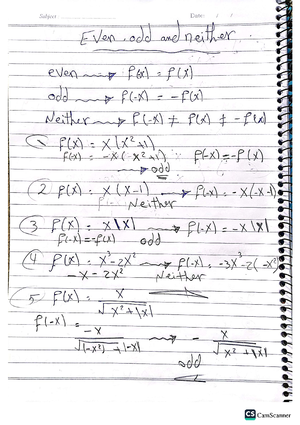 Subject
Date: / /
Even, odd and neither
even → f(x) = f(x)
odd → f(-x) = -f(x)
Neither → f(-x) ≠ f(x) ≠ -f(x)
1 f(x) = x(x²+1)
f(x) = -x(-x²+1) f(-x) = -f(x)
→ odd
2 f(x) = x(x-1) → f(-x) = -x(-x-1)
Neither
3 f(x) = x|x| → f(-x) = -x|x|
f(-x) = -f(x) odd
4 f(x) = x³-2x² → f(-x) = -3x³-2(-x²)
-x-2x² Neither
5 f(x) = x / √x²+|x|
f(-x) = -x / √(-x²)+|-x| → - x / √x²+|x|
odd
CS CamScanner